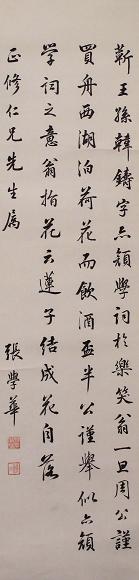 蘄王孫韓鑄字亦顏學詞於樂笑翁一旦周公謹
買舟西湖泊荷花而飲酒盃半公謹舉似亦顏
學詞之意翁指花云蓮子結成花自落
正修仁兄先生屬
張學華